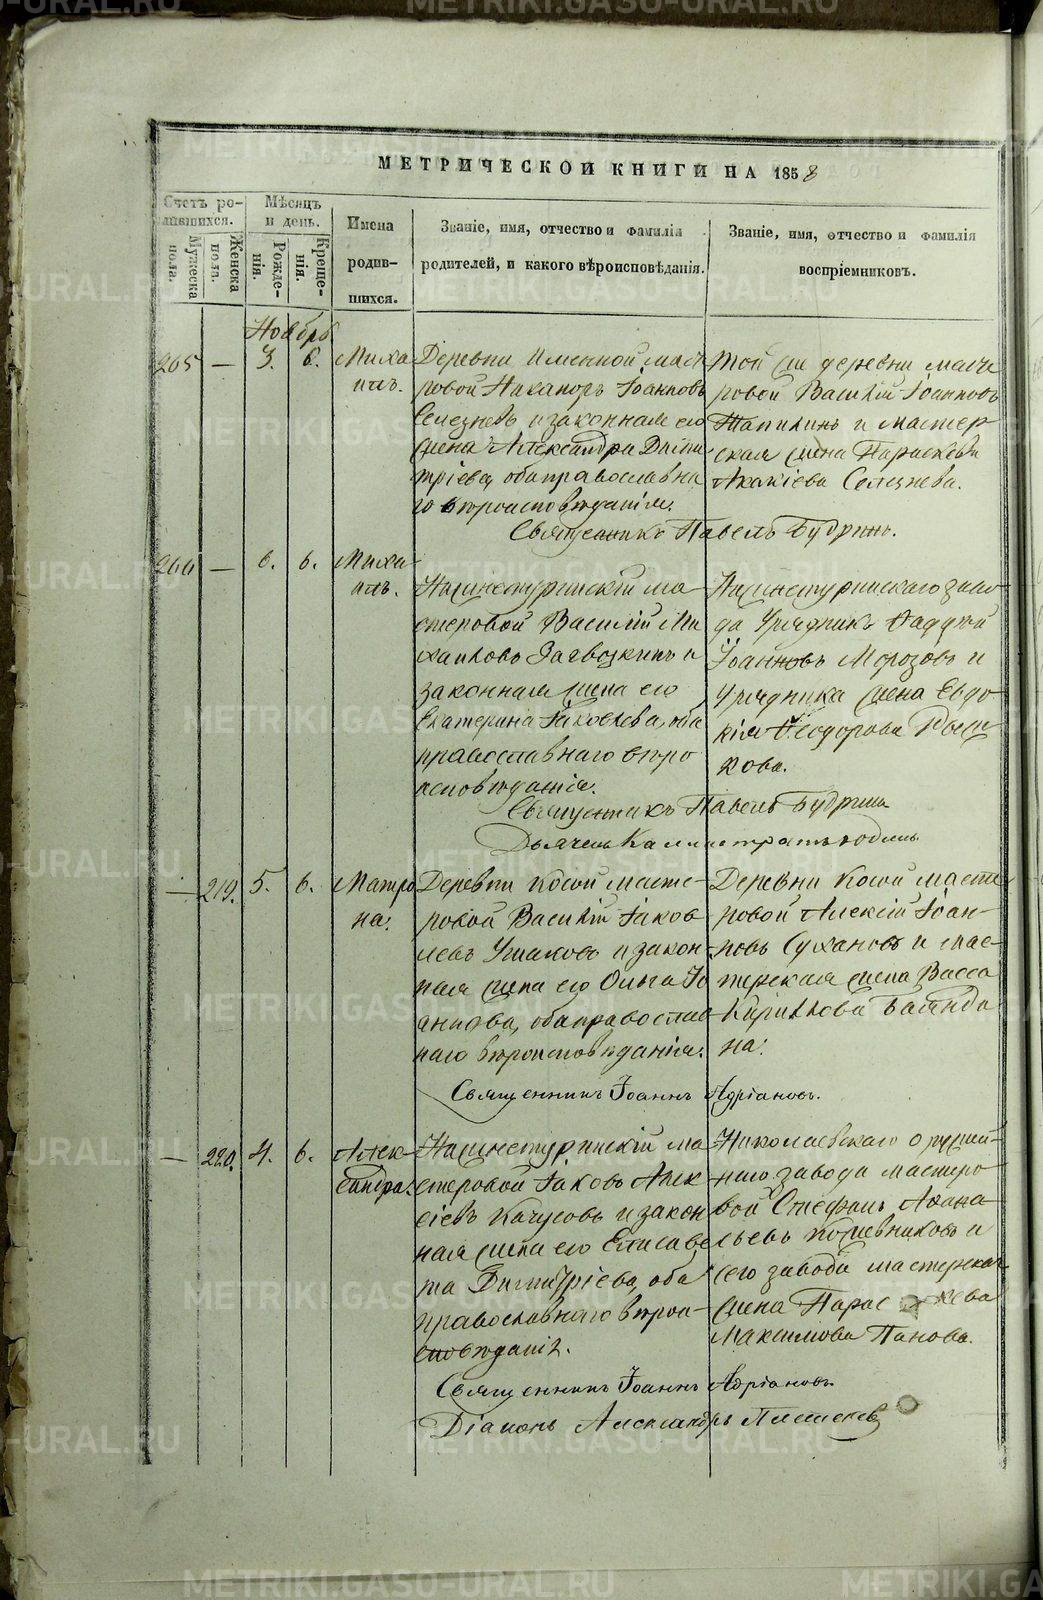 МЕТРИЧЕСКОЙ КНИГИ НА 1858
Счетъ ро-
дившихся.
Мужеска
пола.
Женска
пола.
Мѣсяцъ
и день.
Рожде-
нія.
Креще-
нія.
Имена
родив-
шихся.
Званіе, имя, отчество и фамилія
родителей, и какого вѣроисповѣданія.
Званіе, имя, отчество и фамилія
воспріемниковъ.
Ноябрь
205 — 3. 6.
Миха
илъ.
Деревни Именной масте
ровой Никаноръ Іоанновъ
Селезневъ и законная его
жена Александра Дими
тріева, оба православна
го вѣроисповѣданія.
Той же деревни масте
ровой Василій Іоанновъ
и мастер
ская жена Параскева
Акакіева Селезнева.
Священникъ Павелъ Будринъ.
206 — 6. 6.
Миха
илъ.
Нижнетуринскій ма-
стеровой Василій Ми
хаиловъ Загвозкинъ и
законная жена его
Екатерина Іаковлева, оба
православнаго вѣро
исповѣданія.
Нижнетуринскаго заво
да Урядникъ Фаддей
Іоанновъ Морозовъ и
Урядника жена Евдо
кія Ѳеодорова
кова.
Священникъ Павелъ Будринъ
Дьячекъ Каллистратъ
— 219. 5. 6.
Матро
на.
Деревни Косой масте-
ровой Василій Іаков
левъ Ушаковъ и закон-
ная жена его Ольга Іо
аннова, оба православ
наго вѣроисповѣданія.
Деревни Косой масте
ровой Алексій Іоан-
новъ Сухановъ и мас-
терская жена Васса
Кириллова
на.
Священникъ Іоаннъ Адріановъ.
— 220. 4. 6.
Алек-
сандра.
Нижнетуринскій ма
стеровой Іаковъ Алек
сіевъ Качусовъ и закон
ная жена его Елисаве
та Димитріева, оба
православнаго вѣрои-
сповѣданія.
Николаевскаго оружей-
наго завода мастеро
вой Стефанъ Афана
сьевъ Кожевниковъ и
сего завода мастерская
жена Параскева
Максимова Панова.
Священникъ Іоаннъ Адріановъ.
Діаконъ Александръ